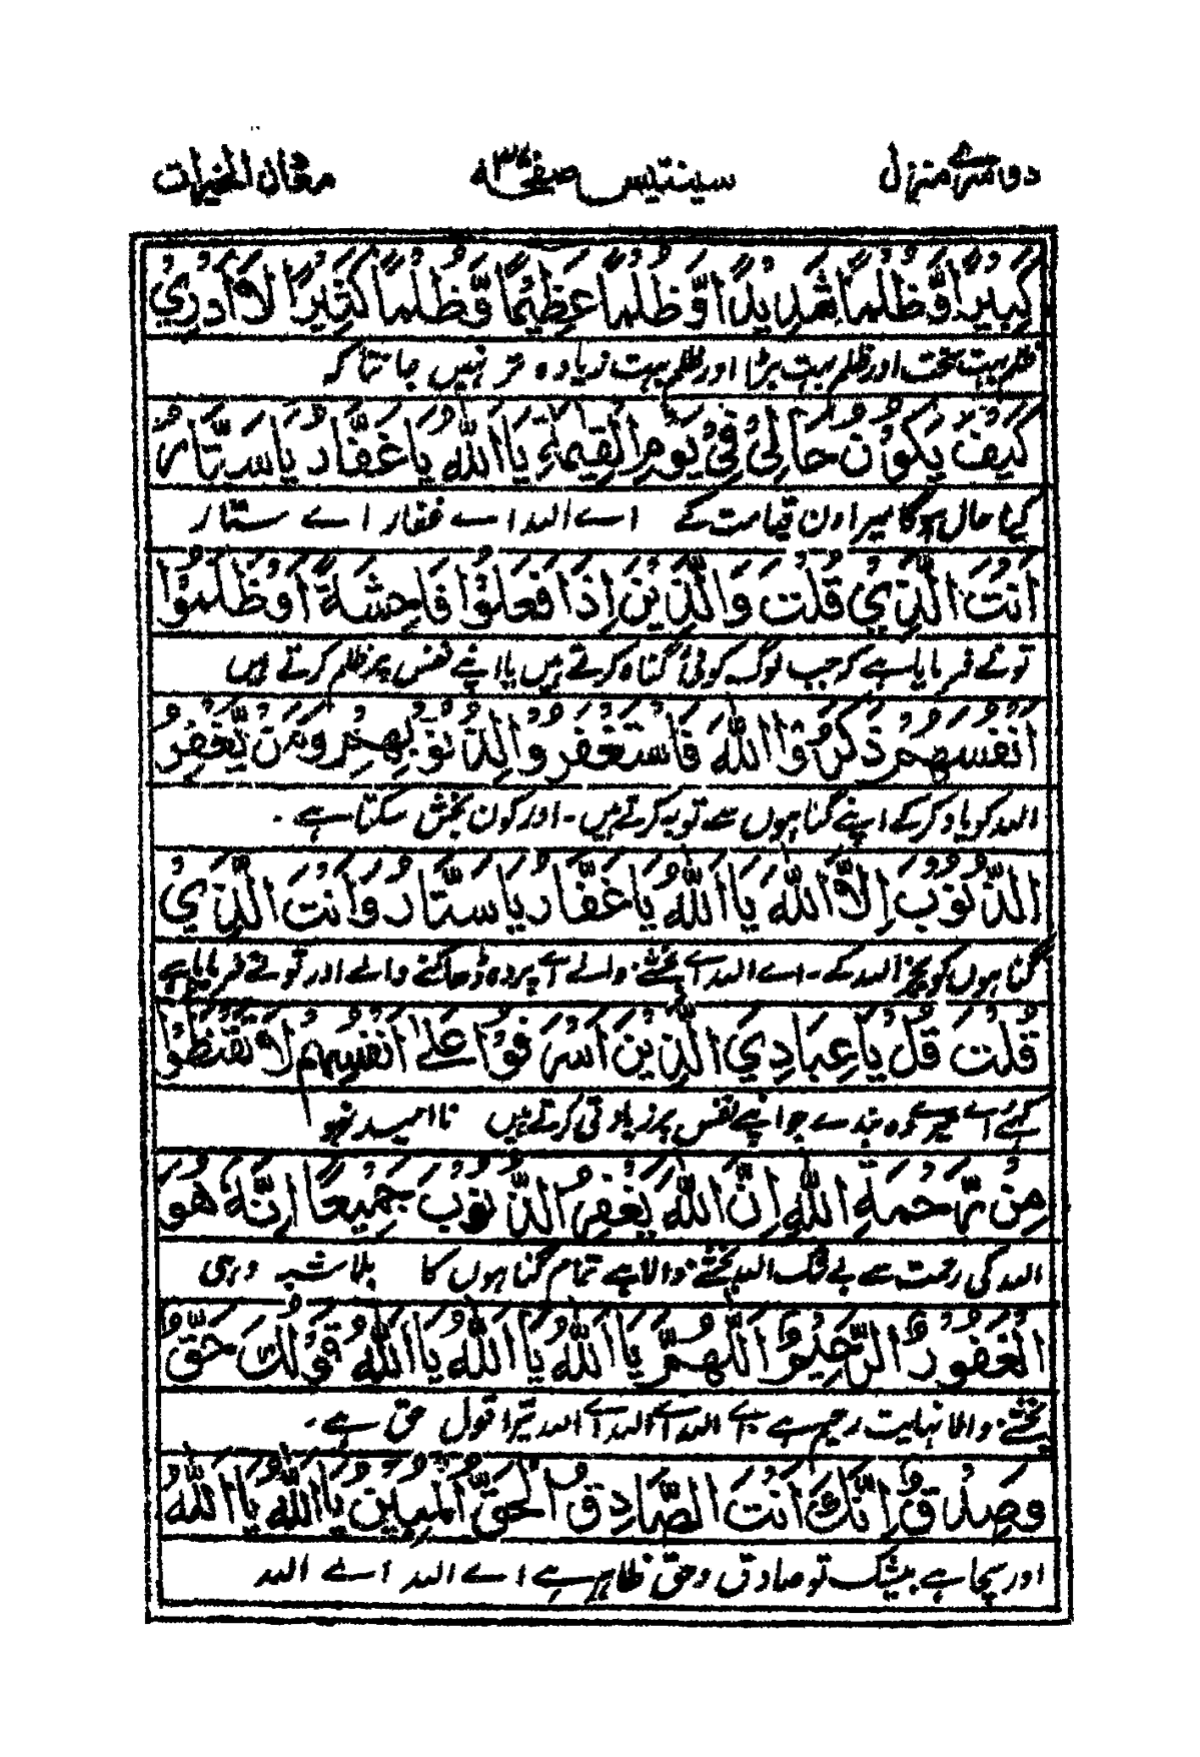 دوسرے منزل سینتیس صفحہ ۳۷ مفتاح الخیرات
كَبِيْرًا وَّظُلْمًا شَدِيْدًا وَّظُلْمًا عَظِيْمًا وَّظُلْمًا كَثِيْرًا لَا اَدْرِيْ
ظلم بہت سخت اور ظلم بہت بڑا اور ظلم بہت زیادہ تر نہیں جانتا کہ
كَيْفَ يَكُوْنُ حَالِيْ فِيْ يَوْمِ الْقِيٰمَةِ يَا اَللّٰهُ يَا غَفَّارُ يَا سَتَّارُ
کیا حال ہوگا میرا دن قیامت کے اے اللہ اے غفار اے ستار
اَنْتَ الَّذِيْ قُلْتَ وَالَّذِيْنَ اِذَا فَعَلُوْا فَاحِشَةً اَوْ ظَلَمُوْا
تونے فرمایا ہے کہ جب لوگ کوئی گناہ کرتے ہیں یا اپنے نفس پر ظلم کرتے ہیں
اَنْفُسَهُمْ ذَكَرُوْا اللّٰهَ فَاسْتَغْفَرُوْا لِذُنُوْبِهِمْ وَمَنْ يَّغْفِرُ
اللہ کو یاد کرکے اپنے گناہوں سے توبہ کرتے ہیں - اور کون بخش سکتا ہے -
الذُّنُوْبَ اِلَّا اللّٰهُ يَا اَللّٰهُ يَا غَفَّارُ يَا سَتَّارُ وَاَنْتَ الَّذِيْ
گناہوں کو بجز اللہ کے - اے اللہ اے بخشنے والے اے پردہ ڈھاکنے والے اور تونے فرمایا ہے
قُلْتَ قُلْ يَا عِبَادِيَ الَّذِيْنَ اَسْرَفُوْا عَلٰى اَنْفُسِهِمْ لَا تَقْنَطُوْا
کہئے اے میرے وہ بندے جو اپنے نفس پر زیادتی کرتے ہیں نا امید نہو
مِنْ رَّحْمَةِ اللّٰهِ اِنَّ اللّٰهَ يَغْفِرُ الذُّنُوْبَ جَمِيْعًا اِنَّهٗ هُوَ
اللہ کی رحمت سے بے شک اللہ بخشنے والا ہے تمام گناہوں کا بلاشبہ وہی
الْغَفُوْرُ الرَّحِيْمُ اَللّٰهُمَّ يَا اَللّٰهُ يَا اَللّٰهُ يَا اَللّٰهُ قَوْلُكَ حَقٌّ
بخشنے والا نہایت رحیم ہے اے اللہ اے اللہ اے اللہ تیرا قول حق ہے -
وَصِدْقٌ اِنَّكَ اَنْتَ الصَّادِقُ الْحَقُّ الْمُبِيْنُ يَا اَللّٰهُ يَا اَللّٰهُ
اور سچا ہے بیشک تو صادق و حق ظاہر ہے اے اللہ اے اللہ